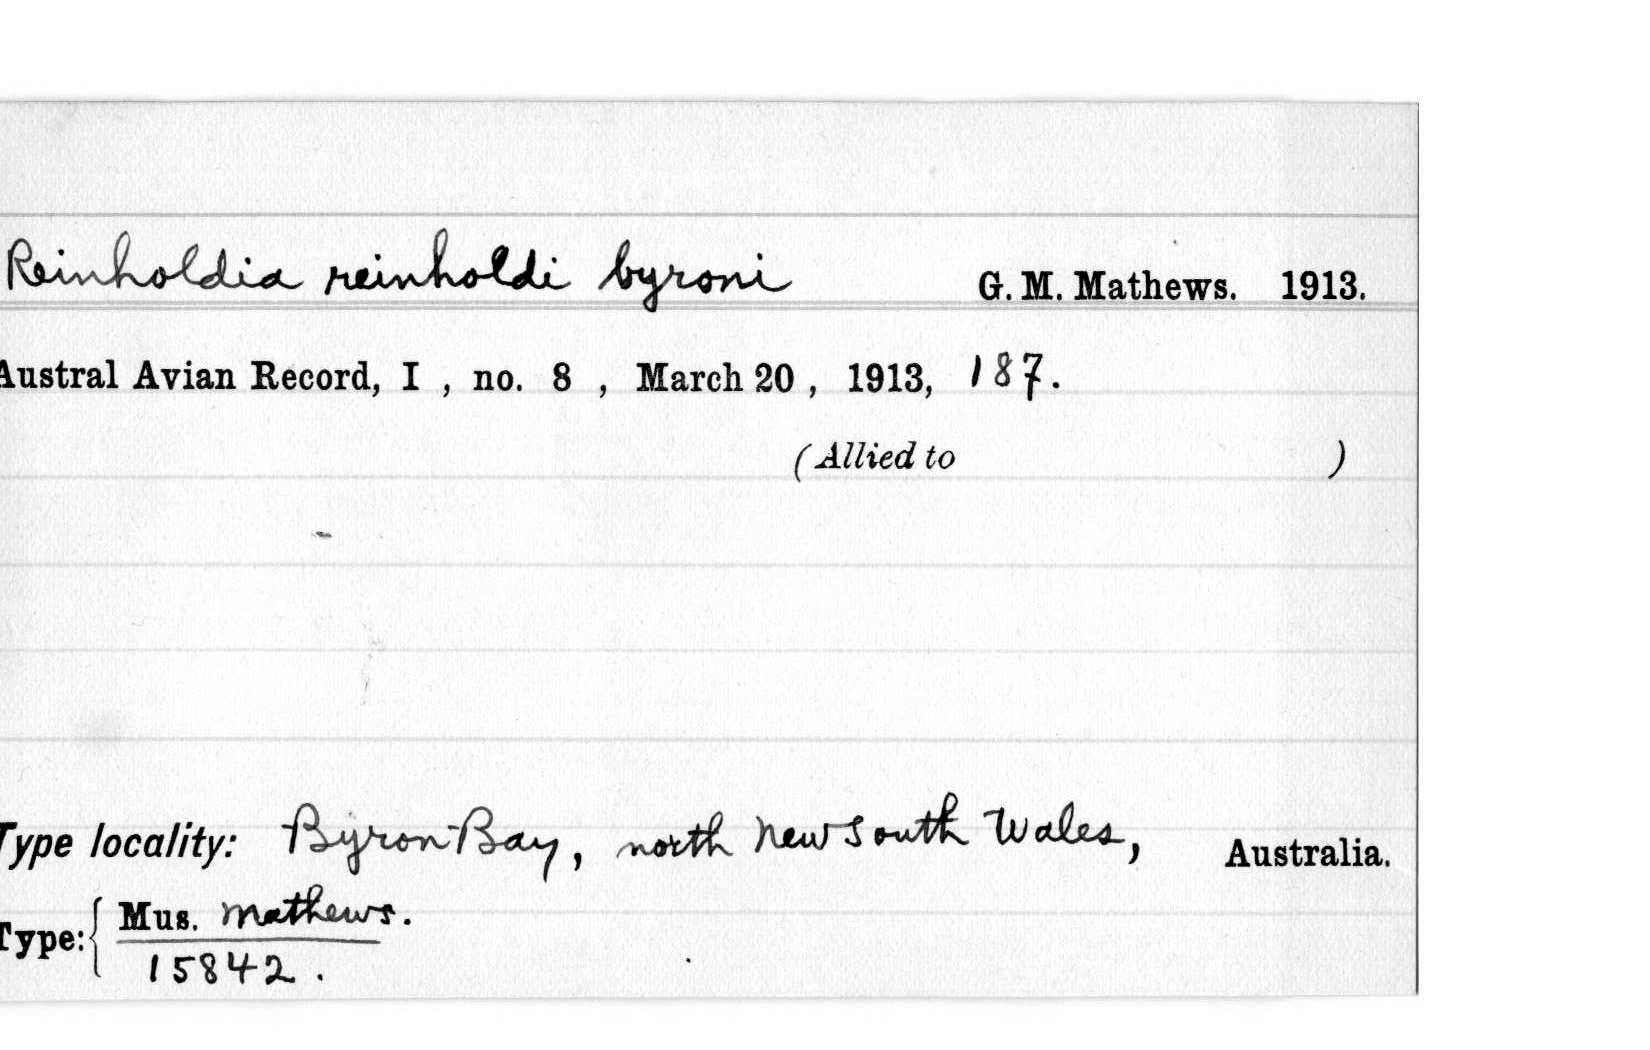 Reinholdia reinholdi byroni G. M. Mathews. 1913.
Austral Avian Record, I , no. 8 , March 20 , 1913, 187.
(Allied to )
Type locality: Byron Bay, north New South Wales, Australia.
Type: { Mus. Mathews.
15842 .